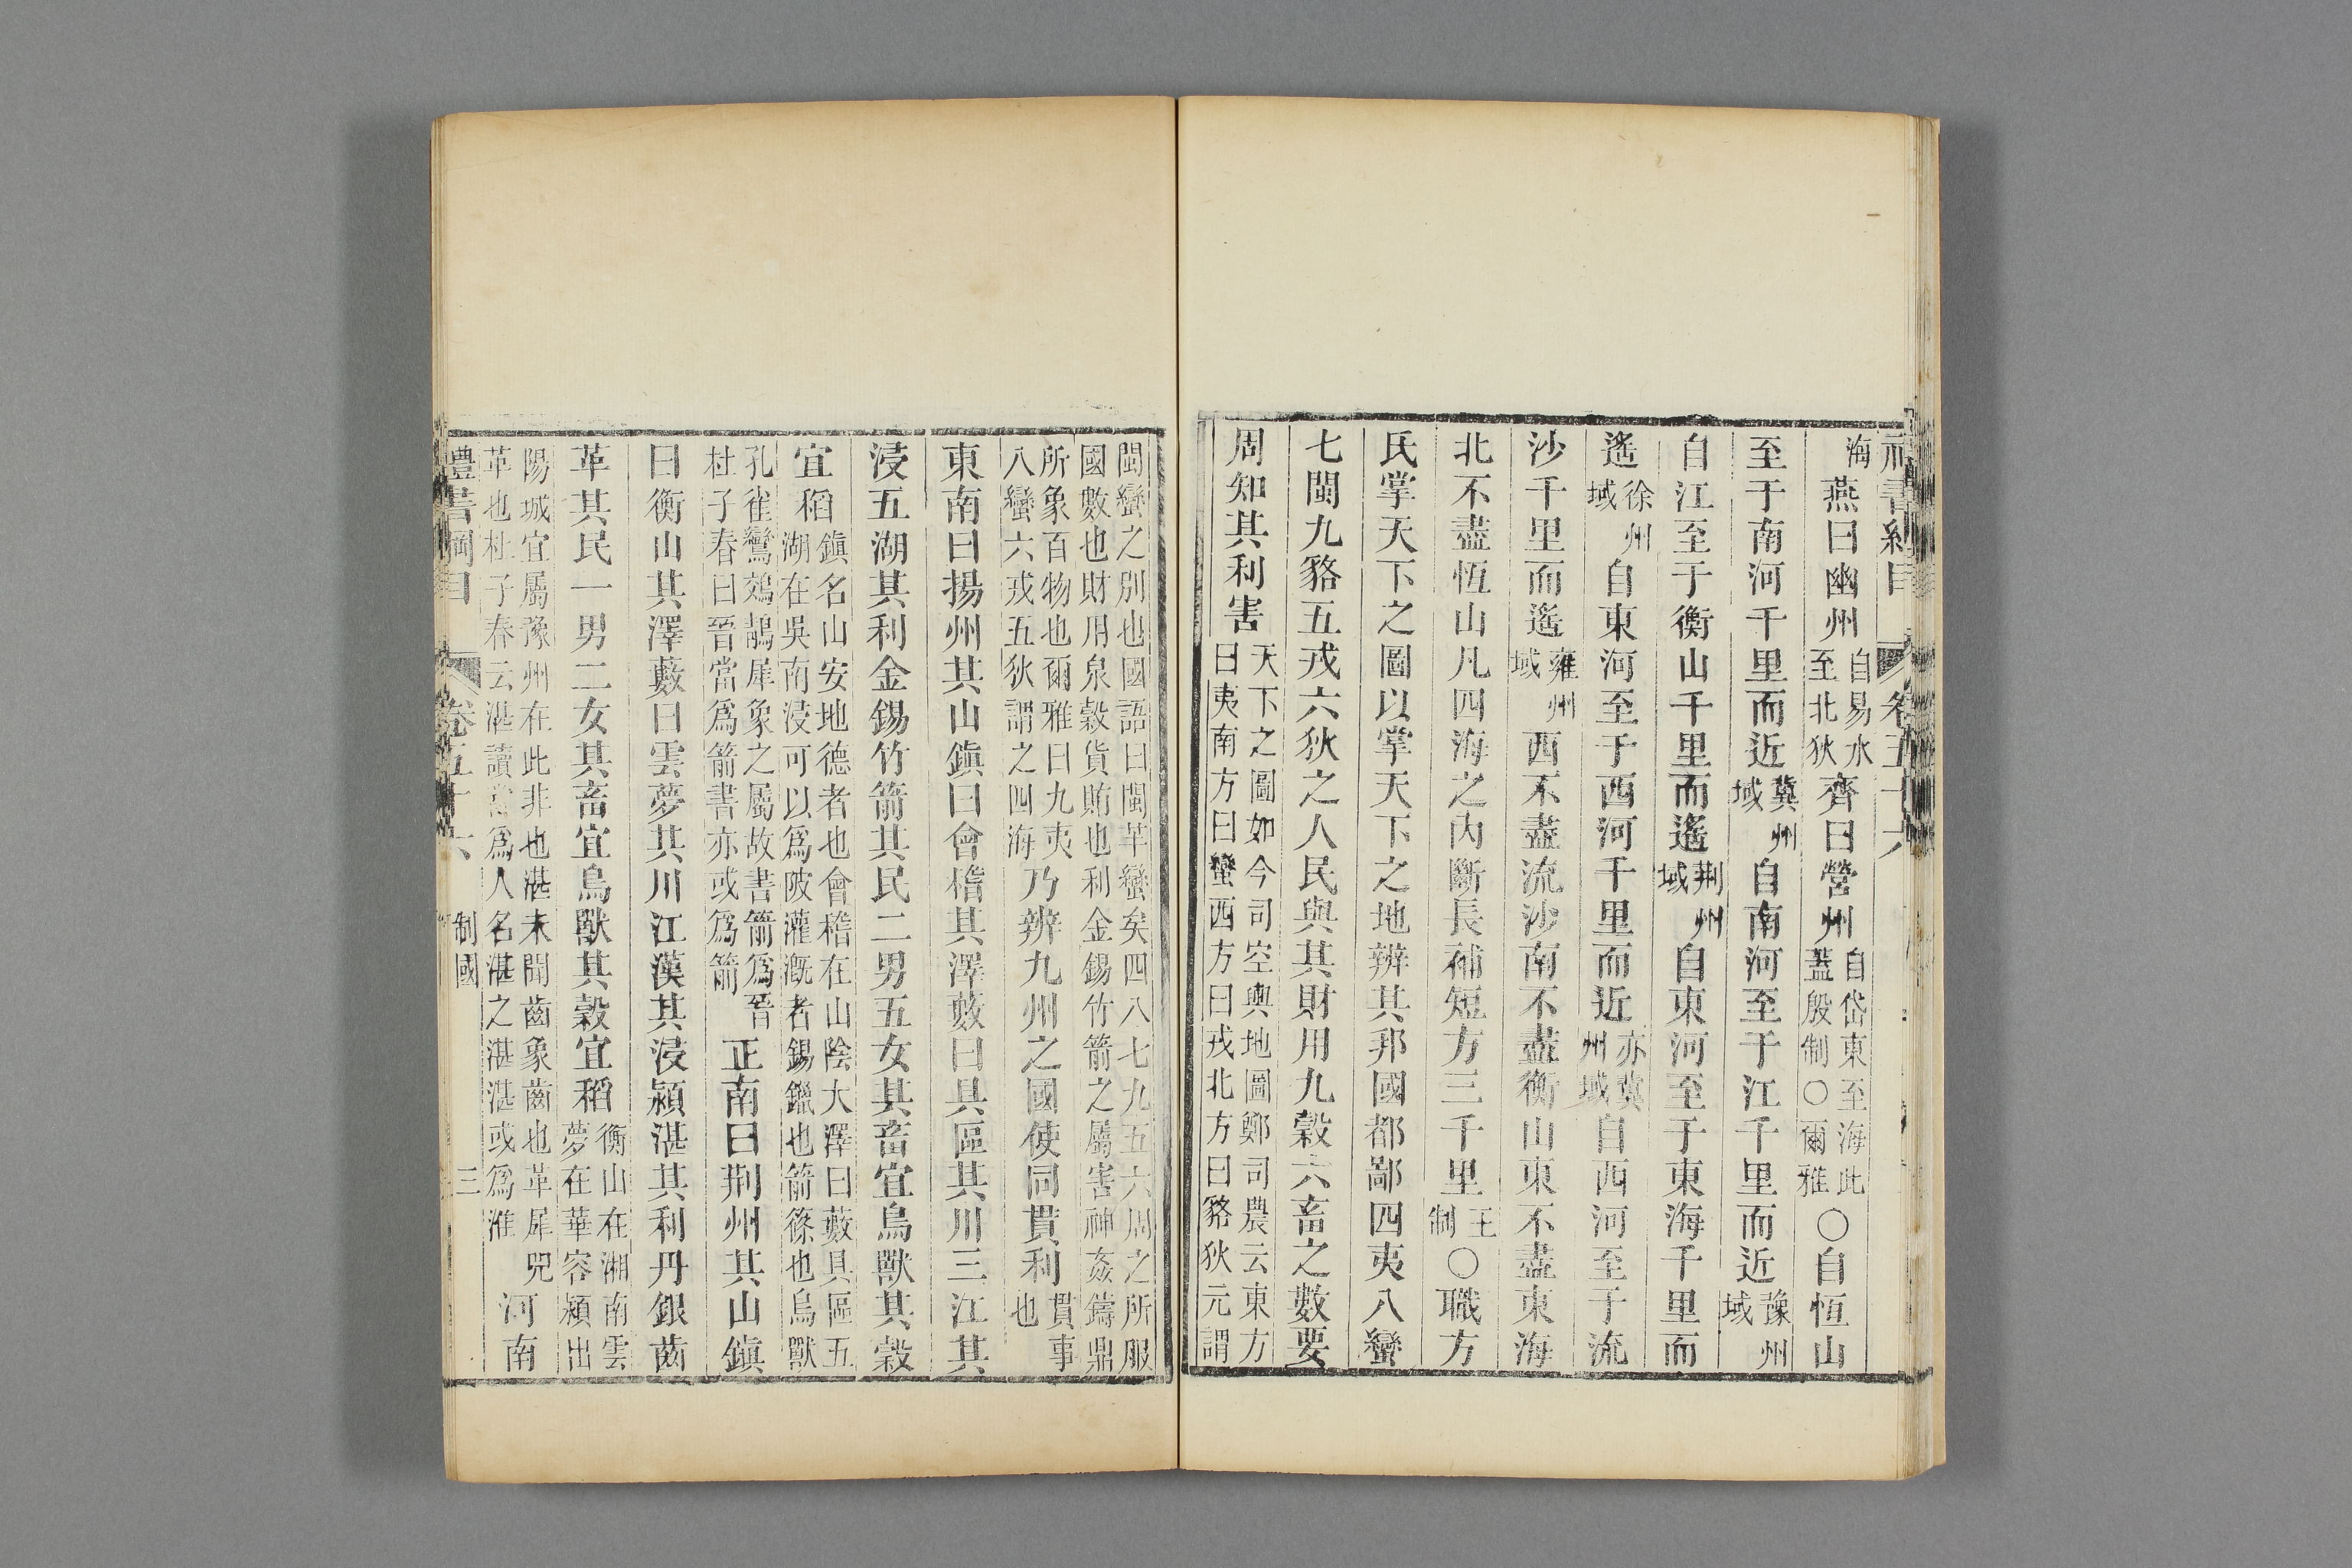 禮書綱目　卷五十六
海燕曰幽州自易水至北狄齊曰營州自岱東至海此蓋殷制○爾雅○自恆山
至于南河千里而近冀州域自南河至于江千里而近豫州域
自江至于衡山千里而遙荆州域自東河至于東海千里而
遙徐州域自東河至于西河千里而近亦冀州域自西河至于流
沙千里而遙雍州域西不盡流沙南不盡衡山東不盡東海
北不盡恆山凡四海之內斷長補短方三千里王制○職方
氏掌天下之圖以掌天下之地辨其邦國都鄙四夷八蠻
七閩九貉五戎六狄之人民與其財用九穀六畜之數要
周知其利害天下之圖如今司空輿地圖鄭司農云東方曰夷南方曰蠻西方曰戎北方曰貉狄元謂
閩蠻之別也國語曰閩芊蠻矣四八七九五六周之所服國數也財用泉穀貨賄也利金錫竹箭之屬害神姦鑄鼎
所象百物也爾雅曰九夷八蠻六戎五狄謂之四海乃辨九州之國使同貫利貫事也
東南曰揚州其山鎭曰會稽其澤藪曰具區其川三江其
浸五湖其利金錫竹箭其民二男五女其畜宜鳥獸其穀
宜稻鎭名山安地德者也會稽在山陰大澤曰藪具區五湖在吳南浸可以爲陂灌漑者錫鑞也箭篠也鳥獸
孔雀鸞鵁鶄犀象之屬故書箭爲晉杜子春曰晉當爲箭書亦或爲箭正南曰荆州其山鎭
曰衡山其澤藪曰雲夢其川江漢其浸潁湛其利丹銀齒
革其民一男二女其畜宜鳥獸其穀宜稻衡山在湘南雲夢在華容潁出
陽城宜屬豫州在此非也湛未聞齒象齒也革犀兕革也杜子春云湛讀當爲人名湛之湛湛或爲淮河南
禮書綱目　卷五十六　制國　三